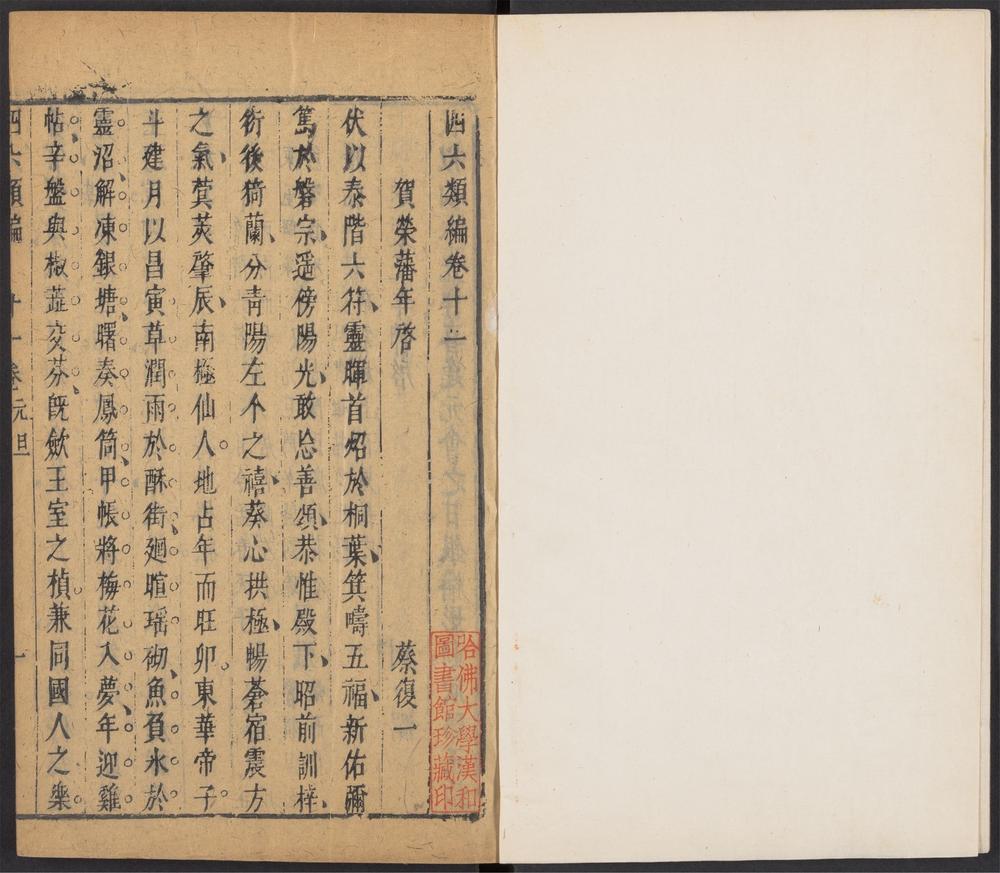 四六類編卷十二
賀榮藩年啓
蔡復一
伏以泰階六符靈暉首炤於桐葉箕疇五福新佑彌
篤於磐宗遥傍陽光敢忘善頌恭惟殿下昭前訓梓
衍後猗蘭分青陽左个之禧葵心拱極暢蒼宿震方
之氣蓂莢肇辰南極仙人地占年而旺卯東華帝子
斗建月以昌寅草潤雨於酥街廻暄瑶砌魚負氷於
靈沼解凍銀塘曙奏鳳筒甲帳將梅花入夢年迎雞
帖辛盤與椒蕋交芬旣歛王室之楨兼同國人之樂
四六類編
卷
元旦
一
哈佛大學漢和
圖書館珍藏印